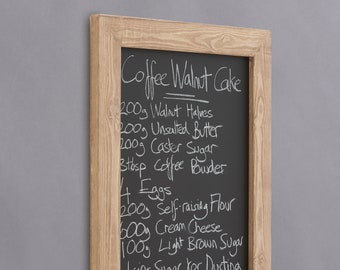 Coffee Walnut Cake
200g Walnut Halves
200g Unsalted Butter
200g Caster Sugar
3tbsp Coffee Powder
4 Eggs
200g Self-raising Flour
600g Cream Cheese
100g Light Brown Sugar
Sugar for Dusting